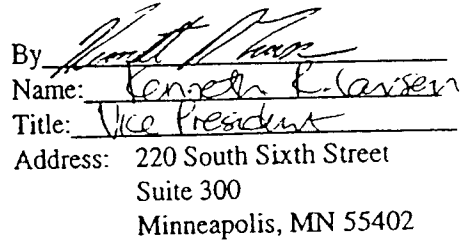 By
Name: Kenneth R. Larsen
Title: Vice President
Address: 220 South Sixth Street
Suite 300
Minneapolis, MN 55402